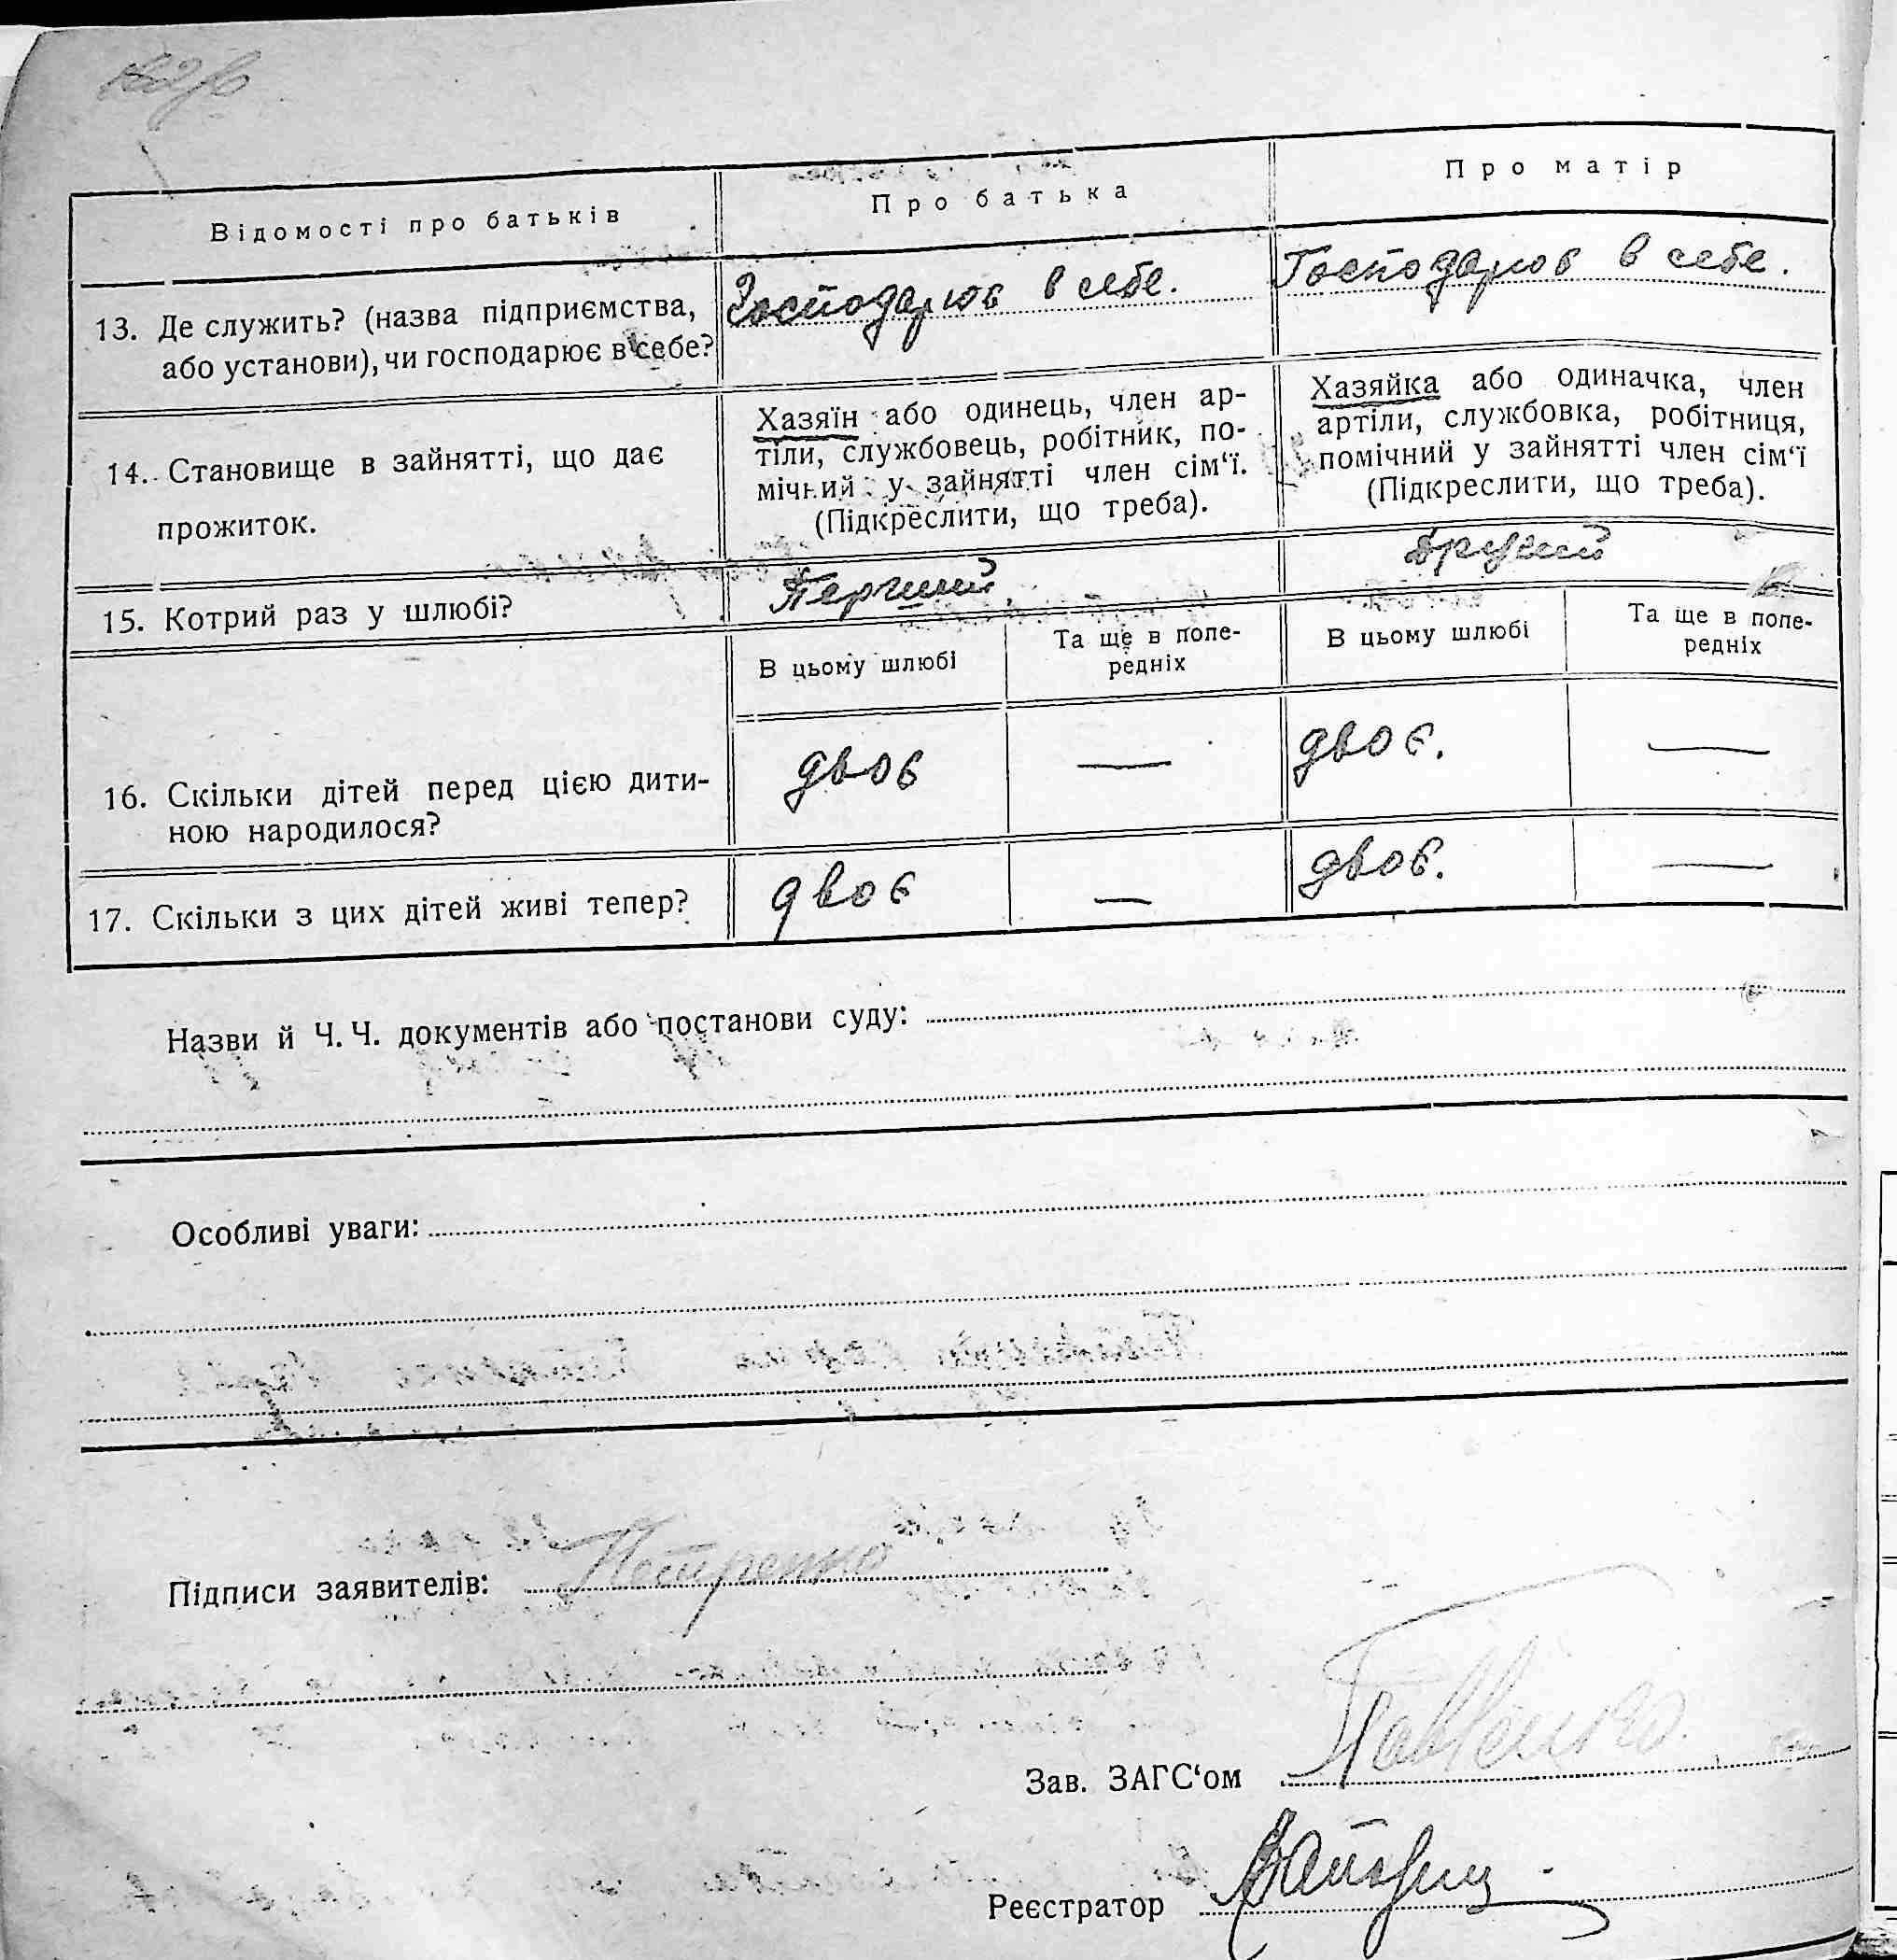 Відомості про батьків
Про батька
Про матір
13. Де служить? (назва підприємства,
або установи), чи господарює в себе?
Господарює в себе.
Господарює в себе.
14. Становище в зайнятті, що дає
прожиток.
Хазяїн або одинець, член ар-
тіли, службовець, робітник, по-
мічний у зайнятті член сім‘ї.
(Підкреслити, що треба).
Хазяйка або одиначка, член
артіли, службовка, робітниця,
помічний у зайнятті член сім‘ї
(Підкреслити, що треба).
15. Котрий раз у шлюбі?
Перший
Другий
В цьому шлюбі
Та ще в попе-
редніх
В цьому шлюбі
Та ще в попе-
редніх
16. Скільки дітей перед цією дити-
ною народилося?
двоє
—
двоє.
—
17. Скільки з цих дітей живі тепер?
двоє
—
двоє.
—
Назви й Ч. Ч. документів або постанови суду:
Особливі уваги:
Підписи заявителів: Петренко
Зав. ЗАГС‘ом
Реєстратор